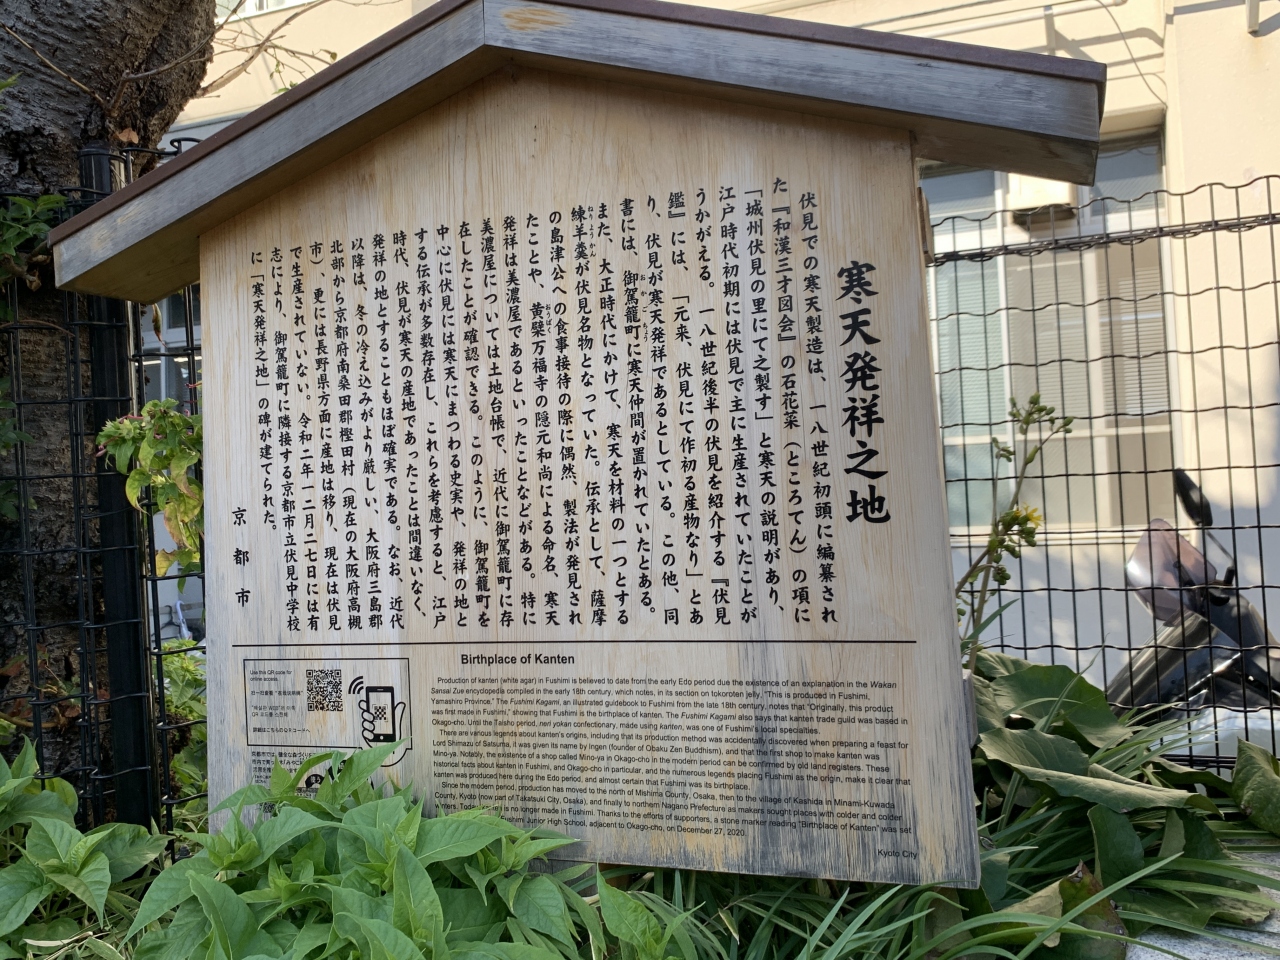 寒天発祥之地
伏見での寒天製造は、一八世紀初頭に編纂され
た『和漢三才図会』の石花菜（ところてん）の項に
「城州伏見の里にて之製す」と寒天の説明があり、
江戸時代初期には伏見で主に生産されていたことが
うかがえる。一八世紀後半の伏見を紹介する『伏見
鑑』には、「元来、伏見にて作初る産物なり」とあ
り、伏見が寒天発祥であるとしている。この他、同
書には、御駕籠町に寒天仲間が置かれていたとある。
おかごちょう
また、大正時代にかけて、寒天を材料の一つとする
練羊羹が伏見名物となっていた。伝承として、薩摩
ねりようかん
の島津公への食事接待の際に偶然、製法が発見され
たことや、黄檗万福寺の隠元和尚による命名、寒天
おうばく
発祥は美濃屋であるといったことなどがある。特に
美濃屋については土地台帳で、近代に御駕籠町に存
在したことが確認できる。このように、御駕籠町を
中心に伏見には寒天にまつわる史実や、発祥の地と
する伝承が多数存在し、これらを考慮すると、江戸
時代、伏見が寒天の産地であったことは間違いなく、
発祥の地とすることもほぼ確実である。なお、近代
以降は、冬の冷え込みがより厳しい、大阪府三島郡
北部から京都府南桑田郡樫田村（現在の大阪府高槻
市）更には長野県方面に産地は移り、現在は伏見
で生産されていない。令和二年一二月二七日には有
志により、御駕籠町に隣接する京都市立伏見中学校
に「寒天発祥之地」の碑が建てられた。
京都市
Birthplace of Kanten
Production of kanten (white agar) in Fushimi is believed to date from the early Edo period due the existence of an explanation in the Wakan
Sansai Zue encyclopedia compiled in the early 18th century, which notes, in its section on tokoroten jelly, "This is produced in Fushimi,
Yamashiro Province." The Fushimi Kagami, an illustrated guidebook to Fushimi from the late 18th century, notes that "Originally, this product
was first made in Fushimi," showing that Fushimi is the birthplace of kanten. The Fushimi Kagami also says that kanten trade guild was based in
Okago-cho. Until the Taisho period, neri yokan confectionary, made using kanten, was one of Fushimi's local specialties.
There are various legends about kanten's origins, including that its production method was accidentally discovered when preparing a feast for
Lord Shimazu of Satsuma, it was given its name by Ingen (founder of Obaku Zen Buddhism), and that the first shop to make kanten was
Mino-ya. Notably, the existence of a shop called Mino-ya in Okago-cho in the modern period can be confirmed by old land registers. These
historical facts about kanten in Fushimi, and Okago-cho in particular, and the numerous legends placing Fushimi as the origin, make it clear that
kanten was produced here during the Edo period, and almost certain that Fushimi was its birthplace.
Since the modern period, production has moved to the north of Mishima County, Osaka, then to the village of Kashida in Minami-Kuwada
County, Kyoto (now part of Takatsuki City, Osaka), and finally to northern Nagano Prefecture as makers sought places with colder and colder
winters. is no longer made in Fushimi. Thanks to the efforts of supporters, a stone marker reading "Birthplace of Kanten" was set
Fushimi Junior High School, adjacent to Okago-cho, on December 27, 2020.
Kyoto City
Use this QR code for
online access.
詳細はこちらのQRコードへ